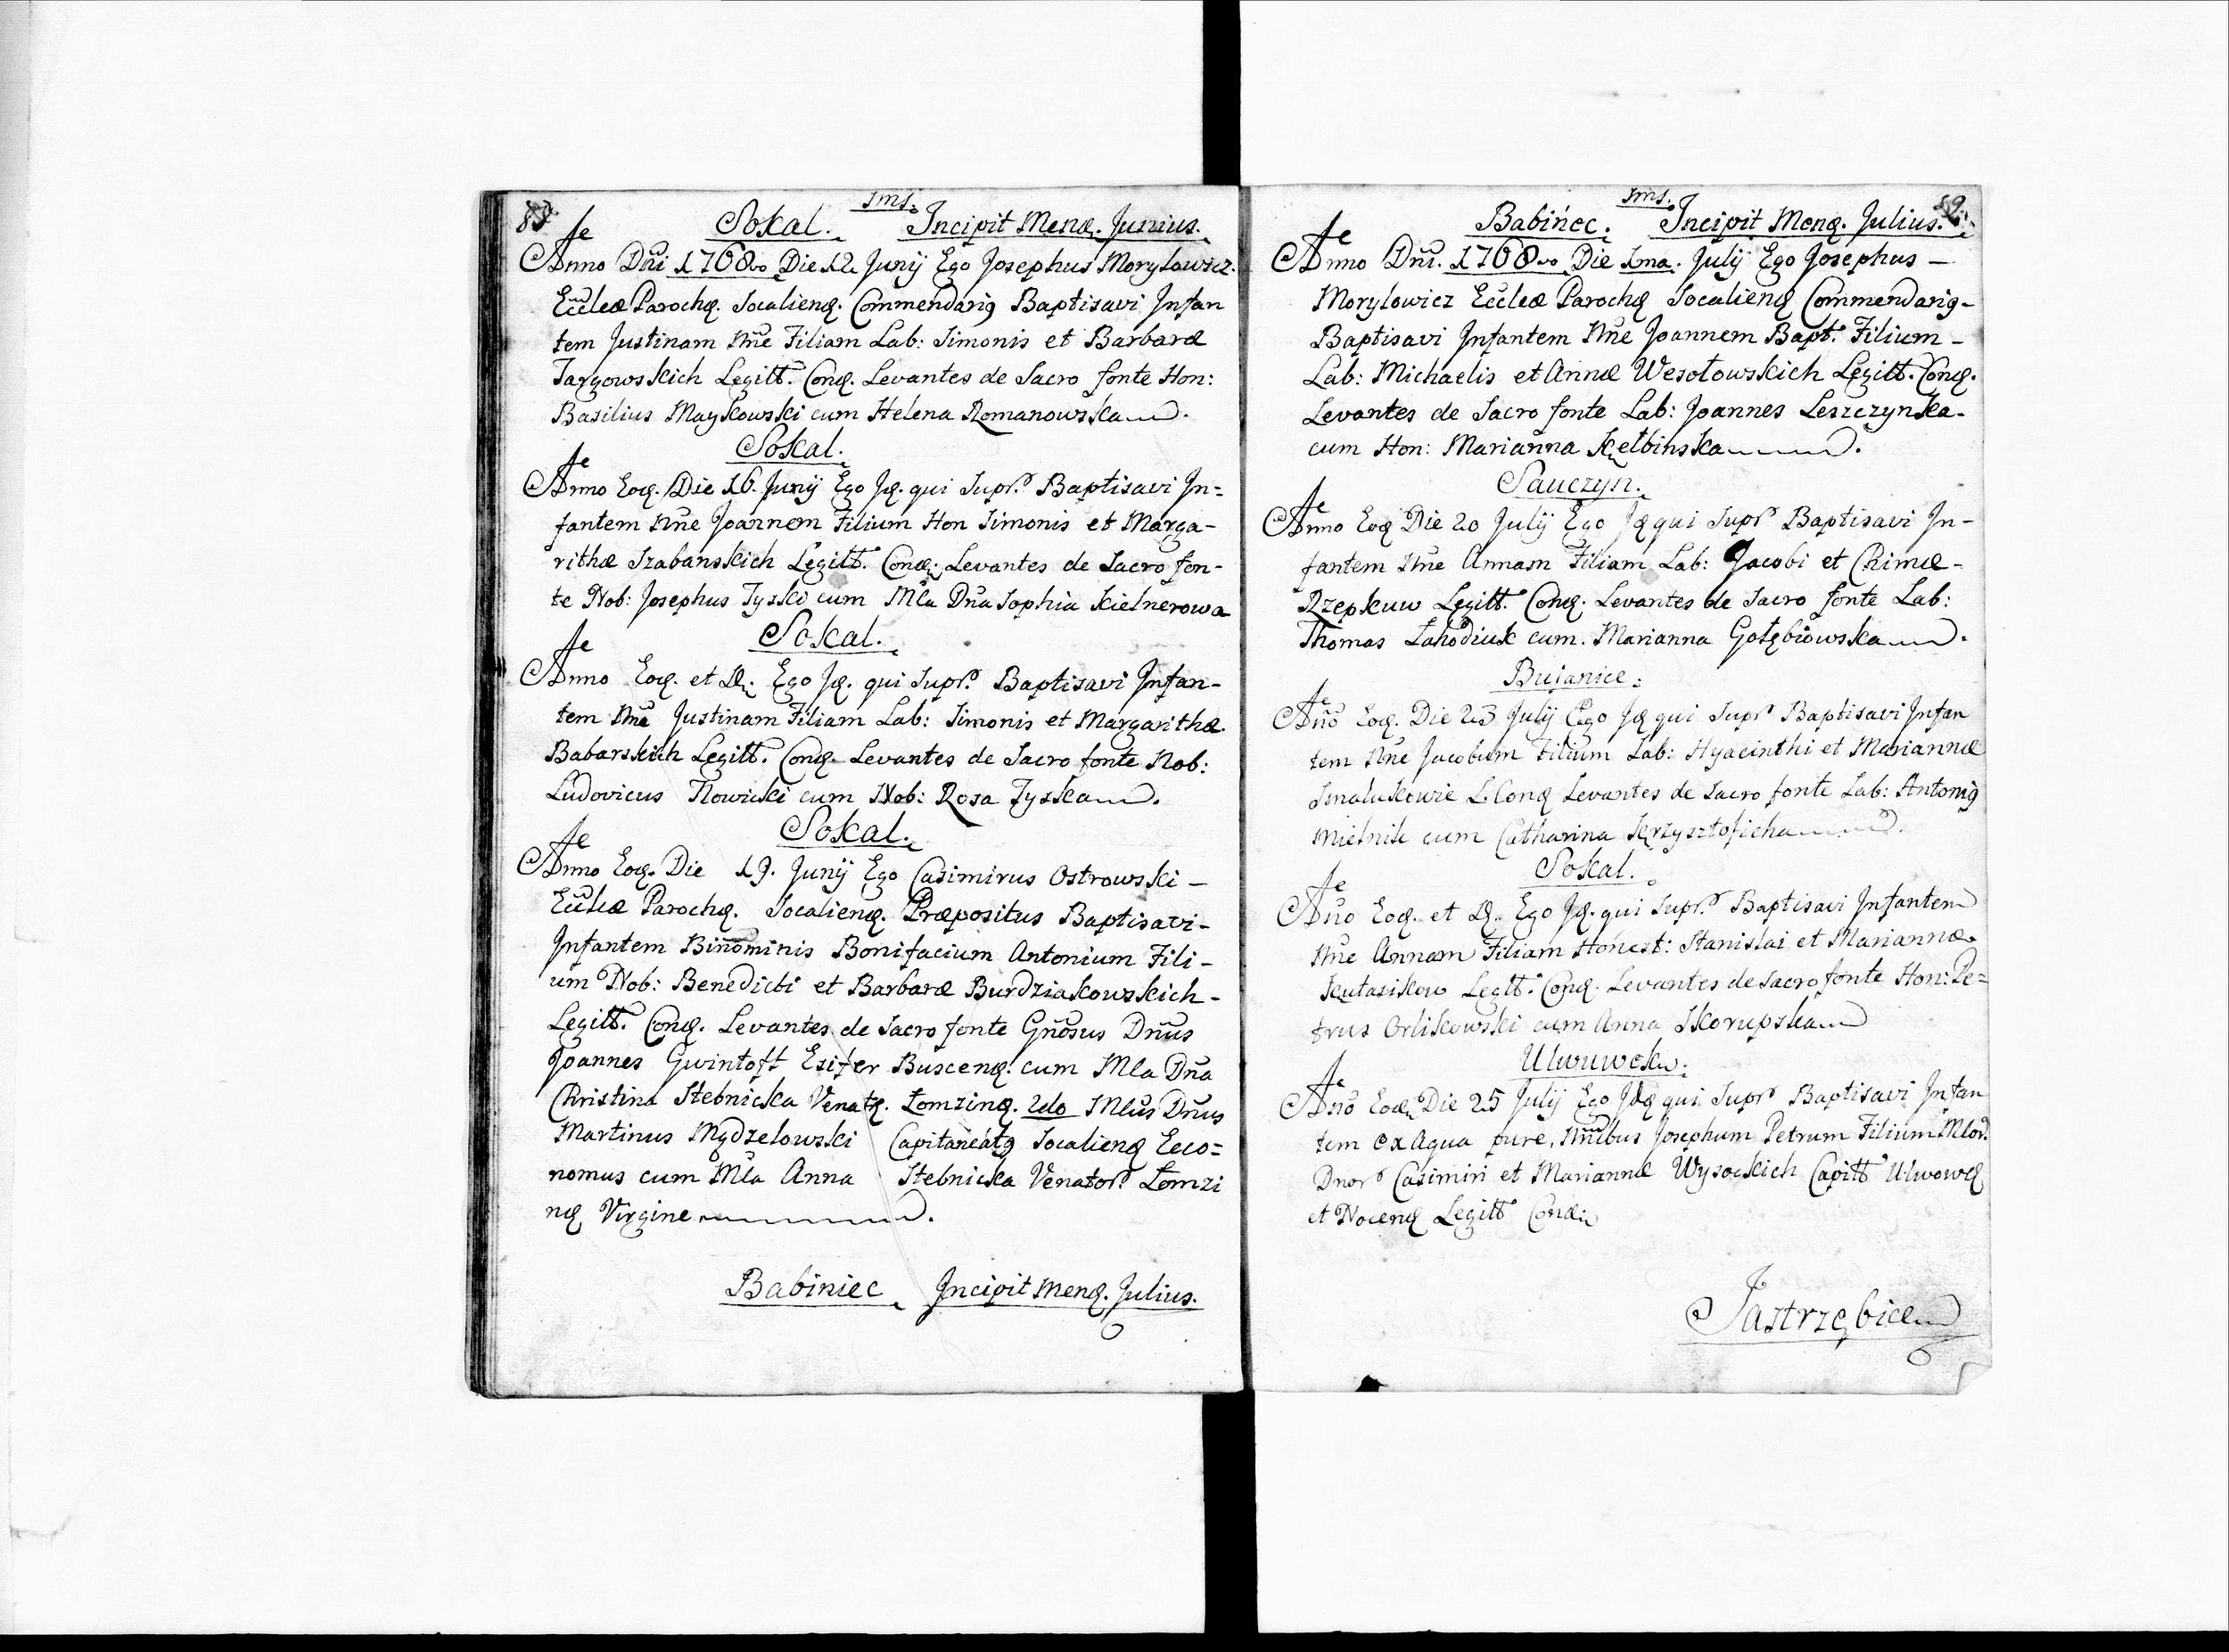 88
Jms.
Sokal. Incipit Mensq. Junius.
Anno Dni 1768vo Die 12 Junij Ego Josephus Morylowicz
Eccleæ Parochq. Socalienq. Commendariq Baptisavi Infan
tem Justinam Nne Filiam Lab: Simonis et Barbaræ
Targowskich Legitt. Conq. Levantes de Sacro fonte Hon:
Basilius Maykowski cum Helena Romanowska.
Sokal.
Anno Eoq. Die 16. Junij Ego Jq. qui Supr. Baptisavi In=
fantem Nne Joannem Filium Hon Simonis et Marga-
rithæ Szabanskich Legitt. Conq. Levantes de Sacro fon-
te Nob: Josephus Tyski cum Mla Dna Sophia Kielnerowa
Sokal.
Anno Eoq. et D. Ego Jq. qui Supr. Baptisavi Infan-
tem Nne Justinam Filiam Lab: Simonis et Margarithæ
Babarskich Legitt. Conq. Levantes de Sacro fonte Nob:
Ludovicus Nowicki cum Nob: Rosa Tyska.
Sokal.
Anno Eoq. Die 19. Junij Ego Casimirus Ostrowski –
Eccleæ Parochq. Socalienq. Præpositus Baptisavi-
Infantem Binominis Bonifacium Antonium Fili-
um Nob: Benedicti et Barbaræ Burdziakowskich-
Legitt. Conq. Levantes de Sacro fonte Gnosus Dnus
Joannes Gwintoft Exifer Buscenq. cum Mla Dna
Christina Stebnicka Venatq. Łomzinq. 2do Mlus Dnus
Martinus Mydzelowski Capitaneatq Socalienq Eco=
nomus cum Mla Anna Stebnicka Venator. Łomzi
nq Virgine.
Babiniec Incipit Menq. Julius.
89
Jms.
Babinec. Incipit Menq. Julius.
Anno Dni. 1768vo Die 1ma. Julij Ego Josephus –
Morylowicz Eccleæ Parochq Socalienq Commendariq-
Baptisavi Infantem Nne Joannem Bapt. Filium –
Lab: Michaelis et Annæ Wesołowskich Legitt. Conq.
Levantes de Sacro fonte Lab: Joannes Leszczynska-
cum Hon: Marianna Kiełbinska.
Sauczyn.
Anno Eoq Die 20 Julij Ego Jq qui Supr Baptisavi In-
fantem Nne Annam Filiam Lab: Jacobi et Chimæ-
Rzepkuw Legitt. Conq. Levantes de Sacro fonte Lab:
Thomas Lahodiuk cum. Marianna Gołębiowska.
Bujanice.
Ano Eoq. Die 23 Julij Ego Jq qui Supr Baptisavi Infan
tem Nne Jacobum Filium Lab: Hyacinthi et Mariannæ
Smalukowie L. Conq Levantes de Sacro fonte Lab: Antoniq
Mielnik cum Catharina Krzysztoficha.
Sokal.
Ano Eoq. et D. Ego Jq. qui Supr. Baptisavi Infantem
Nne Annam Filiam Honest: Stanislai et Mariannæ
Kutasikow Legtt. Conq. Levantes de Sacro fonte Hon: Pe=
trus Orlikowski cum Anna Skorupska
Ulwuwek.
Ano Eoq. Die 25 Julij Ego Jdq qui Supr Baptisavi Infan
tem ex Aqua pure, Nnibus Josephum Petrum Filium Mlor.
Dnor Casimiri et Mariannæ Wysockich Capitt Ulwowq
et Nocenq Legitt Conq
Jastrzębice